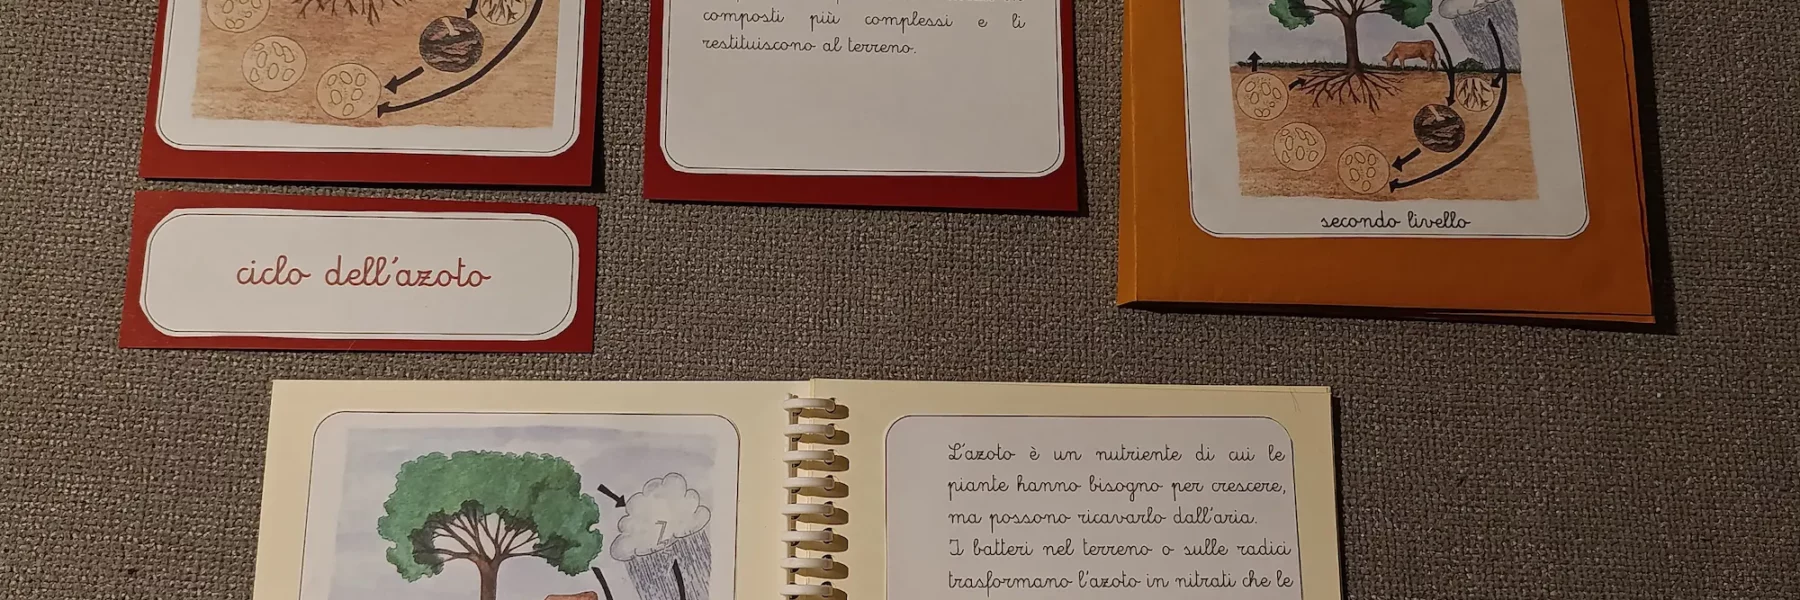 composti più complessi e li
restituiscono al terreno.
secondo livello
ciclo dell'azoto
Z
L'azoto è un nutriente di cui le
piante hanno bisogno per crescere,
ma possono ricavarlo dall'aria.
I batteri nel terreno o sulle radici
trasformano l'azoto in nitrati che le